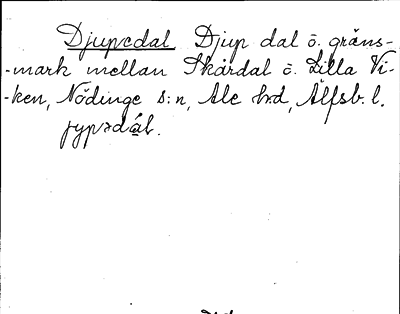 Djupedal Djup dal ō. gräns-
-mark mellan Skårdal ō. Lilla Vi-
-ken, Nödinge s:n, Ale hrd, Älfsb. l.